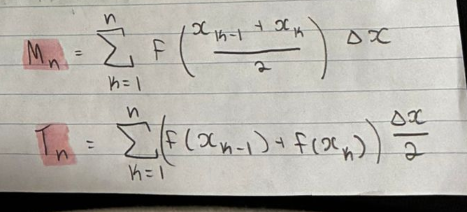 Mₙ = ∑ₖ₌₁ⁿ F((xₖ₋₁ + xₖ)/2) Δx
Tₙ = ∑ₖ₌₁ⁿ (f(xₖ₋₁) + f(xₖ)) Δx/2